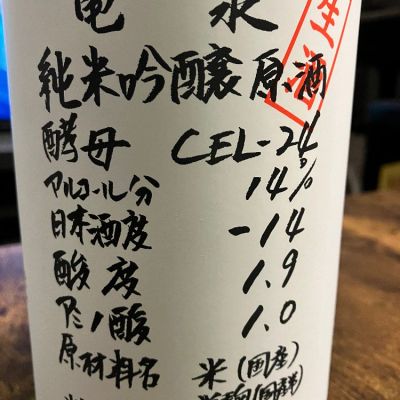 亀泉
純米吟醸原酒
生酒
酵母 CEL-24
アルコール分 14%
日本酒度 -14
酸度 1.9
アミノ酸 1.0
原材料名 米(国産)